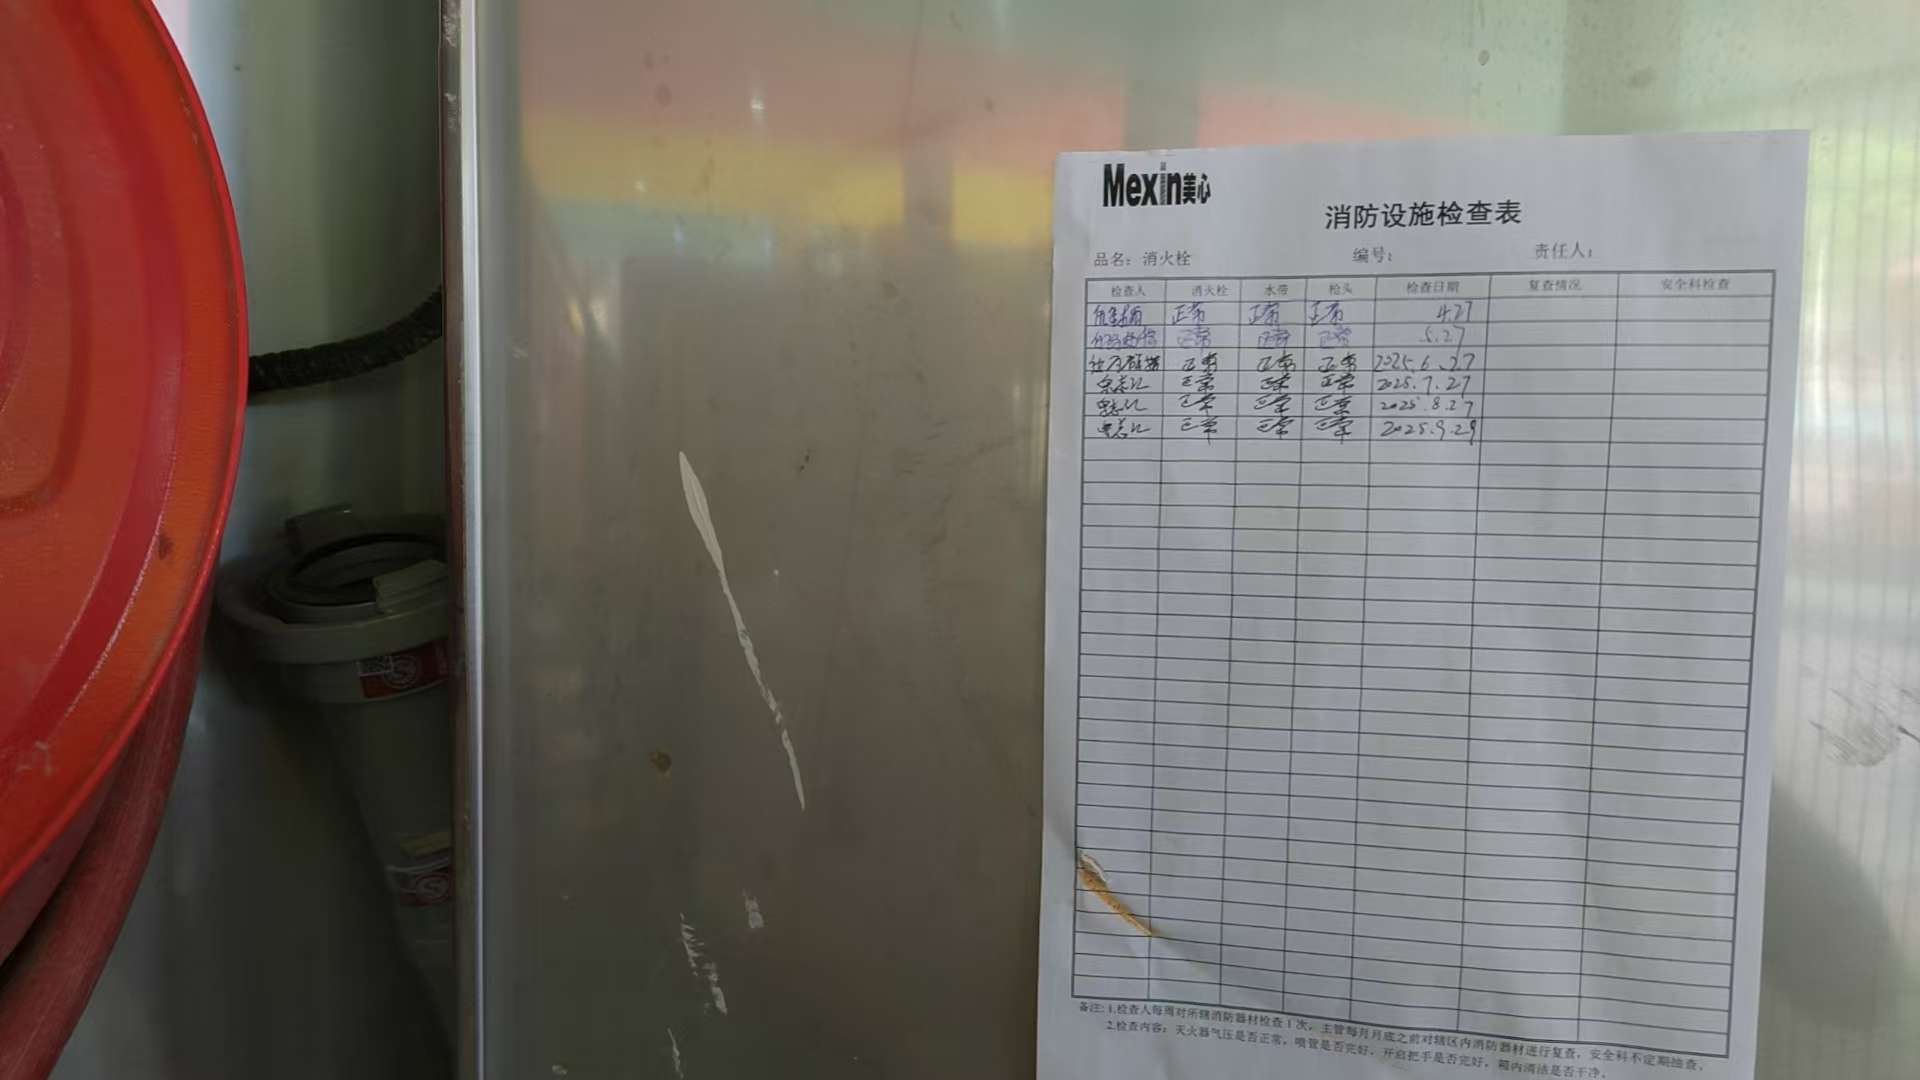 Mexin美心
消防设施检查表
品名：消火栓 编号： 责任人：
检查人 消火栓 水带 枪头 检查日期 复查情况 安全科检查
正常 正常 正常 4.27
正常 正常 正常 5.27
正常 正常 正常 2025.6.27
正常 正常 正常 2025.7.27
正常 正常 正常 2025.8.27
正常 正常 正常 2025.9.29
备注：1.检查人每周对所辖消防器材检查1次，主管每月月底之前对辖区内消防器材进行复查，安全科不定期抽查。
2.检查内容：灭火器气压是否正常，喷管是否完好，开启把手是否完好，箱内清洁是否干净。